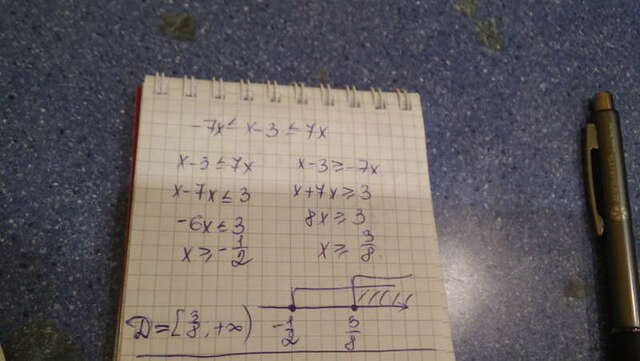 -7x ≤ x-3 ≤ 7x
x-3 ≤ 7x    x-3 ≥ -7x
x-7x ≤ 3    x+7x ≥ 3
-6x ≤ 3    8x ≥ 3
x ≥ -1/2    x ≥ 3/8
D = [3/8, +∞)    -1/2    3/8